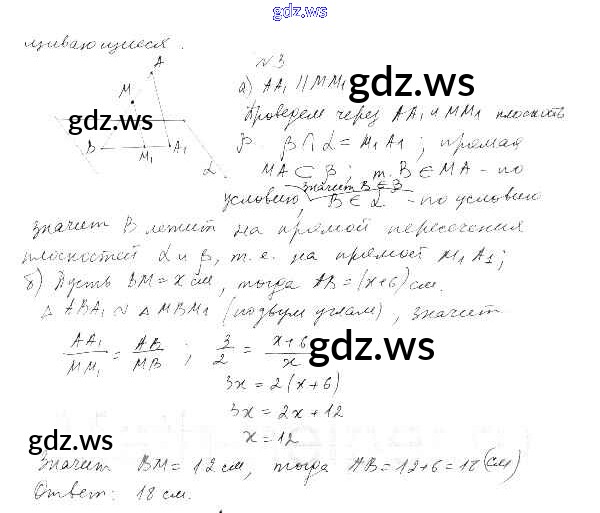 gdz.ws
щивающиеся.
N 3
A
а) AA₁ || MM₁
M
gdz.ws
Проведем через AA₁ и MM₁ плоскость
gdz.ws
β. β ∩ α = M₁A₁; прямая
B M₁ A₁
MA ⊂ β; т. B ∈ MA - по
α
условию значит B ∈ β B ∈ α - по условию
значит B лежит на прямой пересечения
плоскостей α и β, т.е. на прямой M₁A₁;
б) Пусть BM = x см, тогда AB = (x+6) см.
△ABA₁ ~ △MBM₁ (по двум углам), значит
AA₁/MM₁ = AB/MB ; 3/2 = x+6/x
gdz.ws
3x = 2(x+6)
3x = 2x+12
x = 12
gdz.ws
Значит BM = 12 см, тогда AB = 12+6 = 18 (см)
Ответ: 18 см.